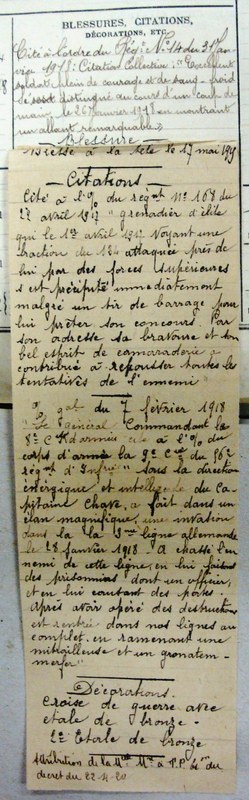 BLESSURES, CITATIONS,
DÉCORATIONS, ETC.
Cité à l'ordre du Rég. N° 14 du 31 Jan
vier 1918 : Citation Collective : "Excellent
soldat plein de courage et de sang-froid
s'est distingué au cours d'un coup de
main, le 26 Janvier 1918 en montrant
un allant remarquable."
Blessure
Blessé à la tête le 17 mai 19
Citations
Cité à l'O/ du régmt N° 168 du
22 avril 1917 "grenadier d'élite
qui le 1er avril 1917. Voyant une
fraction du 134 attaquée près de
lui par des forces supérieures
s'est précipité immédiatement
malgré un tir de barrage pour
lui prêter son concours. Par
son adresse sa bravoure et son
bel esprit de camaraderie a
contribué à repousser toutes les
tentatives de l'ennemi
du 7 février 1918
"Le général Commandant le
8e C. d'armée cite à l'O/ du
corps d'armée la 9e Cie du 56e
régmt d'Infrie "sous la direction
énergique et intelligente du Ca-
pitaine Chave, a fait dans un
élan magnifique, une invasion
dans la ligne allemande
le 28 Janvier 1918. A chassé l'en
nemi de cette ligne, en lui faisant
des prisonniers dont un officier,
et en lui causant des pertes.
Après avoir opéré des destructions
est rentrée dans nos lignes au
complet, en ramenant une
mitrailleuse et un granatem-
merfer"
Décorations.
Croise de guerre avec
étale de bronze -
2e Etale de bronze
Attribution de la Mlle Mre à P.P. du
décret du 22-11-20